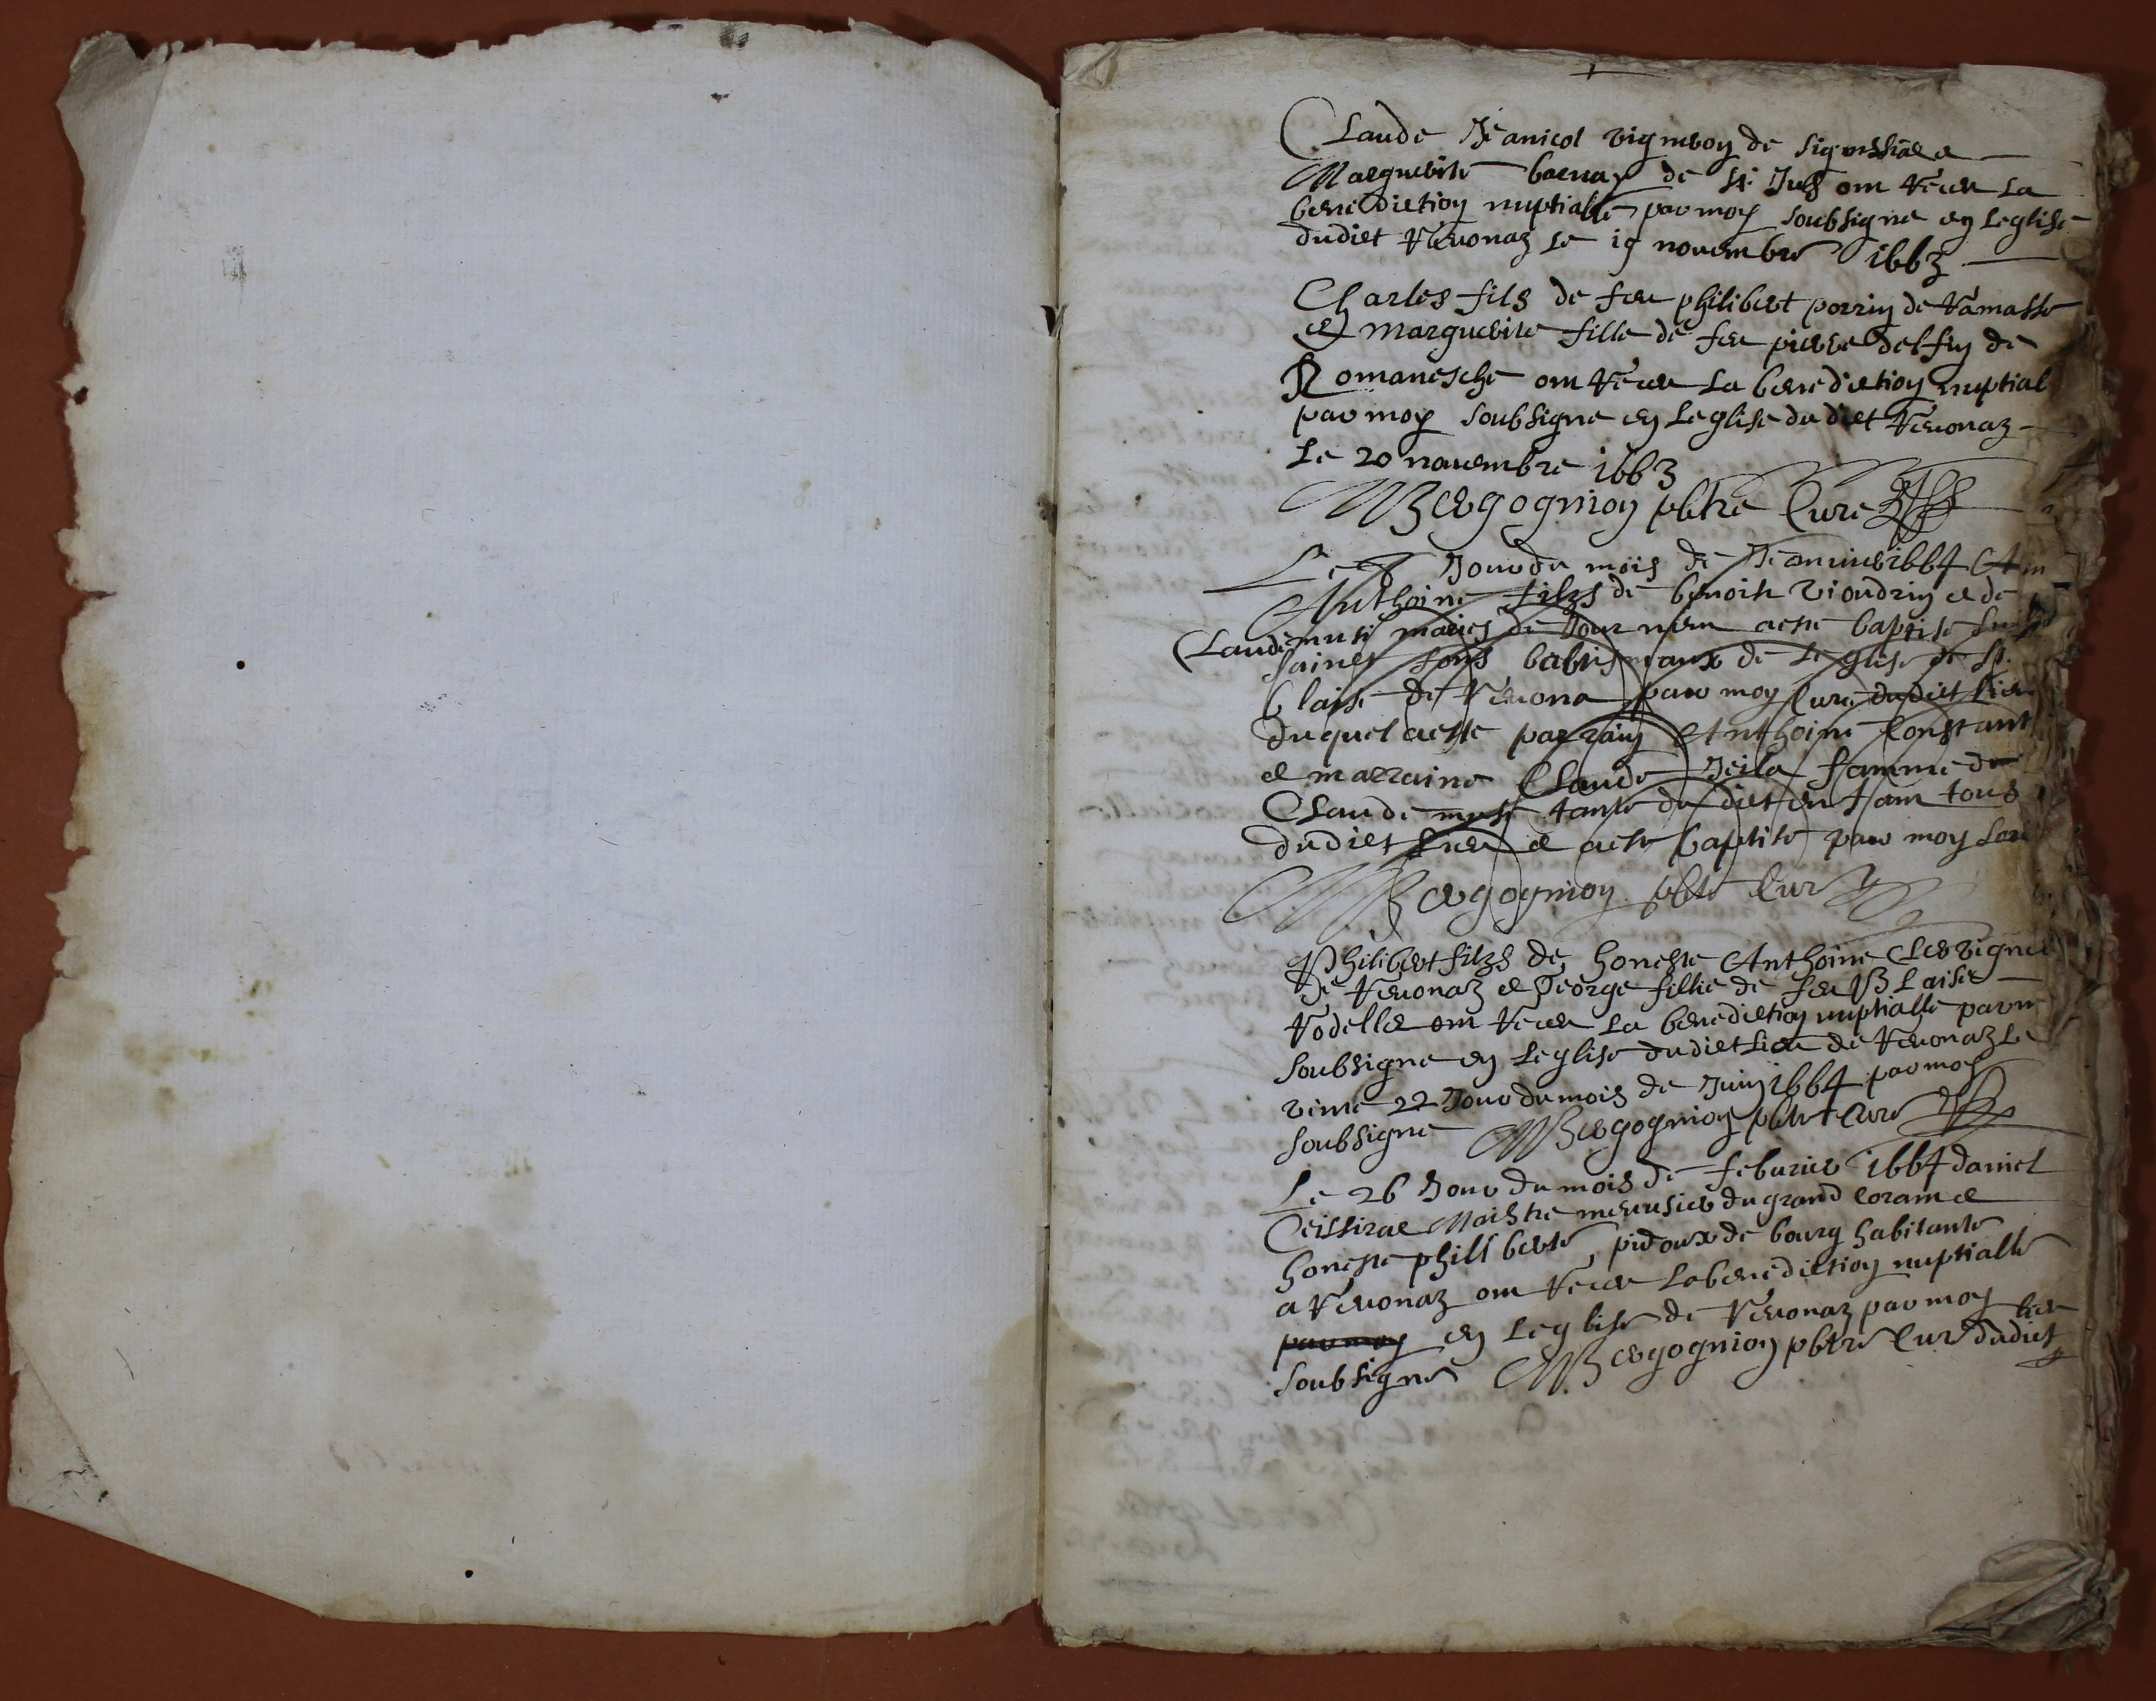 Claude Jeanicot vigneron de
Marguerite de St Just ont receu la
benediction nuptialle par moy soubsigne en leglise
dudict Revonaz le 19 novembre 1663
Charles fils de feu philibert perrin de Ramasse
et marguerite fille de feu pierre delfin de
Romanesche ont receu la benediction nuptial
par moy soubsigne en leglise dudict Revonaz
Le 20 novembre 1663
MBergognion pbtre Cure
Le jour du mois de Jeanvier 1664
Anthoine filzs de benoist viondrin et de
Claude musi maries de Journem aeste baptise
sainct fons babtismaux de leglise de St
blaise de Revona par moy Cure dudict lieu
duquel aeste parrain Anthoine Constant
et marraine Claude famme de
Claude musi tante dudict enfam tous
dudict lieu et aeste baptise par moy
MBergognion pbte Cure
Philibert filzs de honeste Anthoine
de Revonaz et George fillie de feu Blaise
Rodelle ont receu la benediction nuptialle par m
soubsigne en leglise dudict lieu de Revonaz le
22 Jour du mois de Juin 1664 par moy
soubsigne MBergognion pbtre Cure
Le 26 Jour du mois de feburier 1664 daniel
Maistre menusier du grand et
honeste philiberte pidoux de bourg habitante
a Revonaz ont receu la benediction nuptialle
par moy en leglise de Revonaz par moy
soubsigne MBergognion pbtre Cure dudict lieu